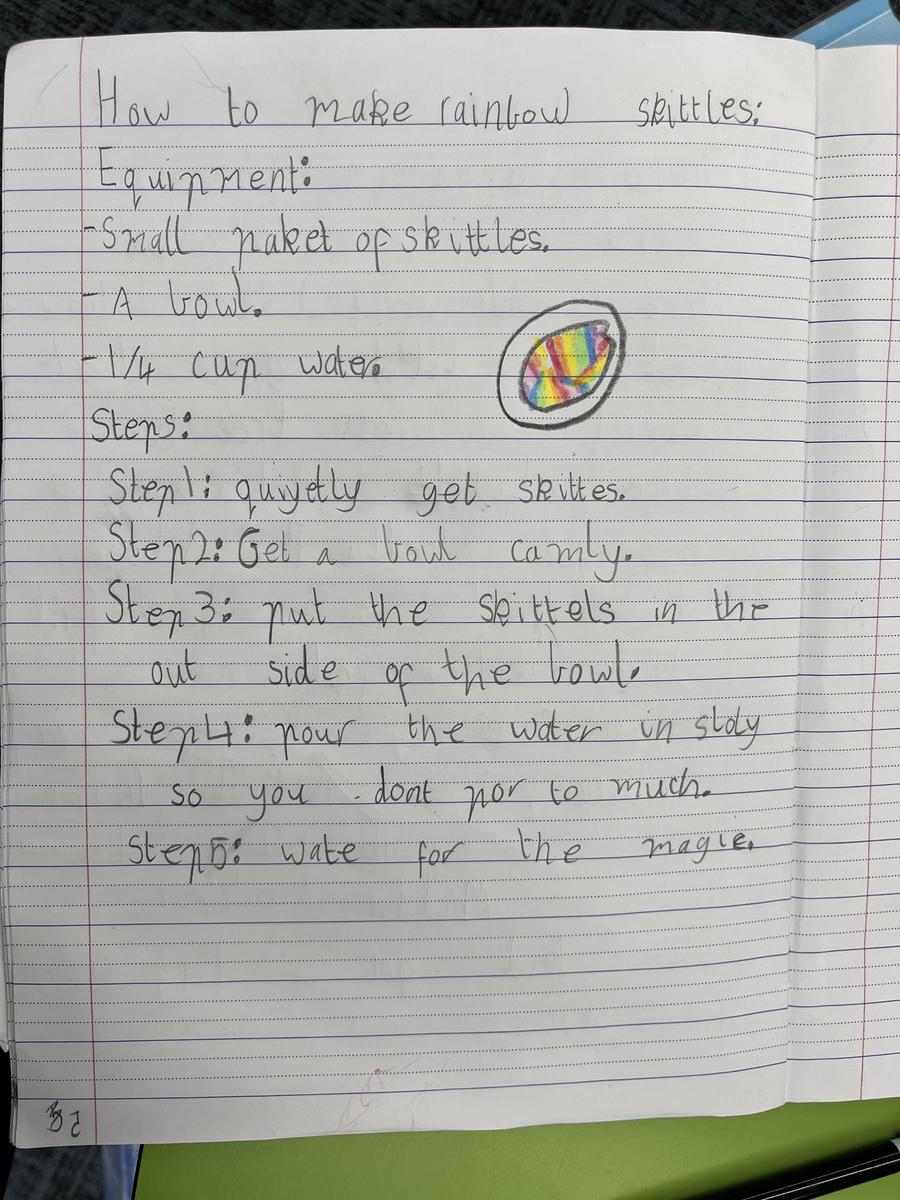 How to make rainbow skittles:
Equipment:
-Small paket of skittles.
- A bowl.
-1/4 cup water.
Steps:
Step1: quiyetly get skittes.
Step2: Get a bowl camly.
Step3: put the skittels in the
out side of the bowl.
Step4: pour the water in sloly
so you dont por to much.
Step5: wate for the magic.